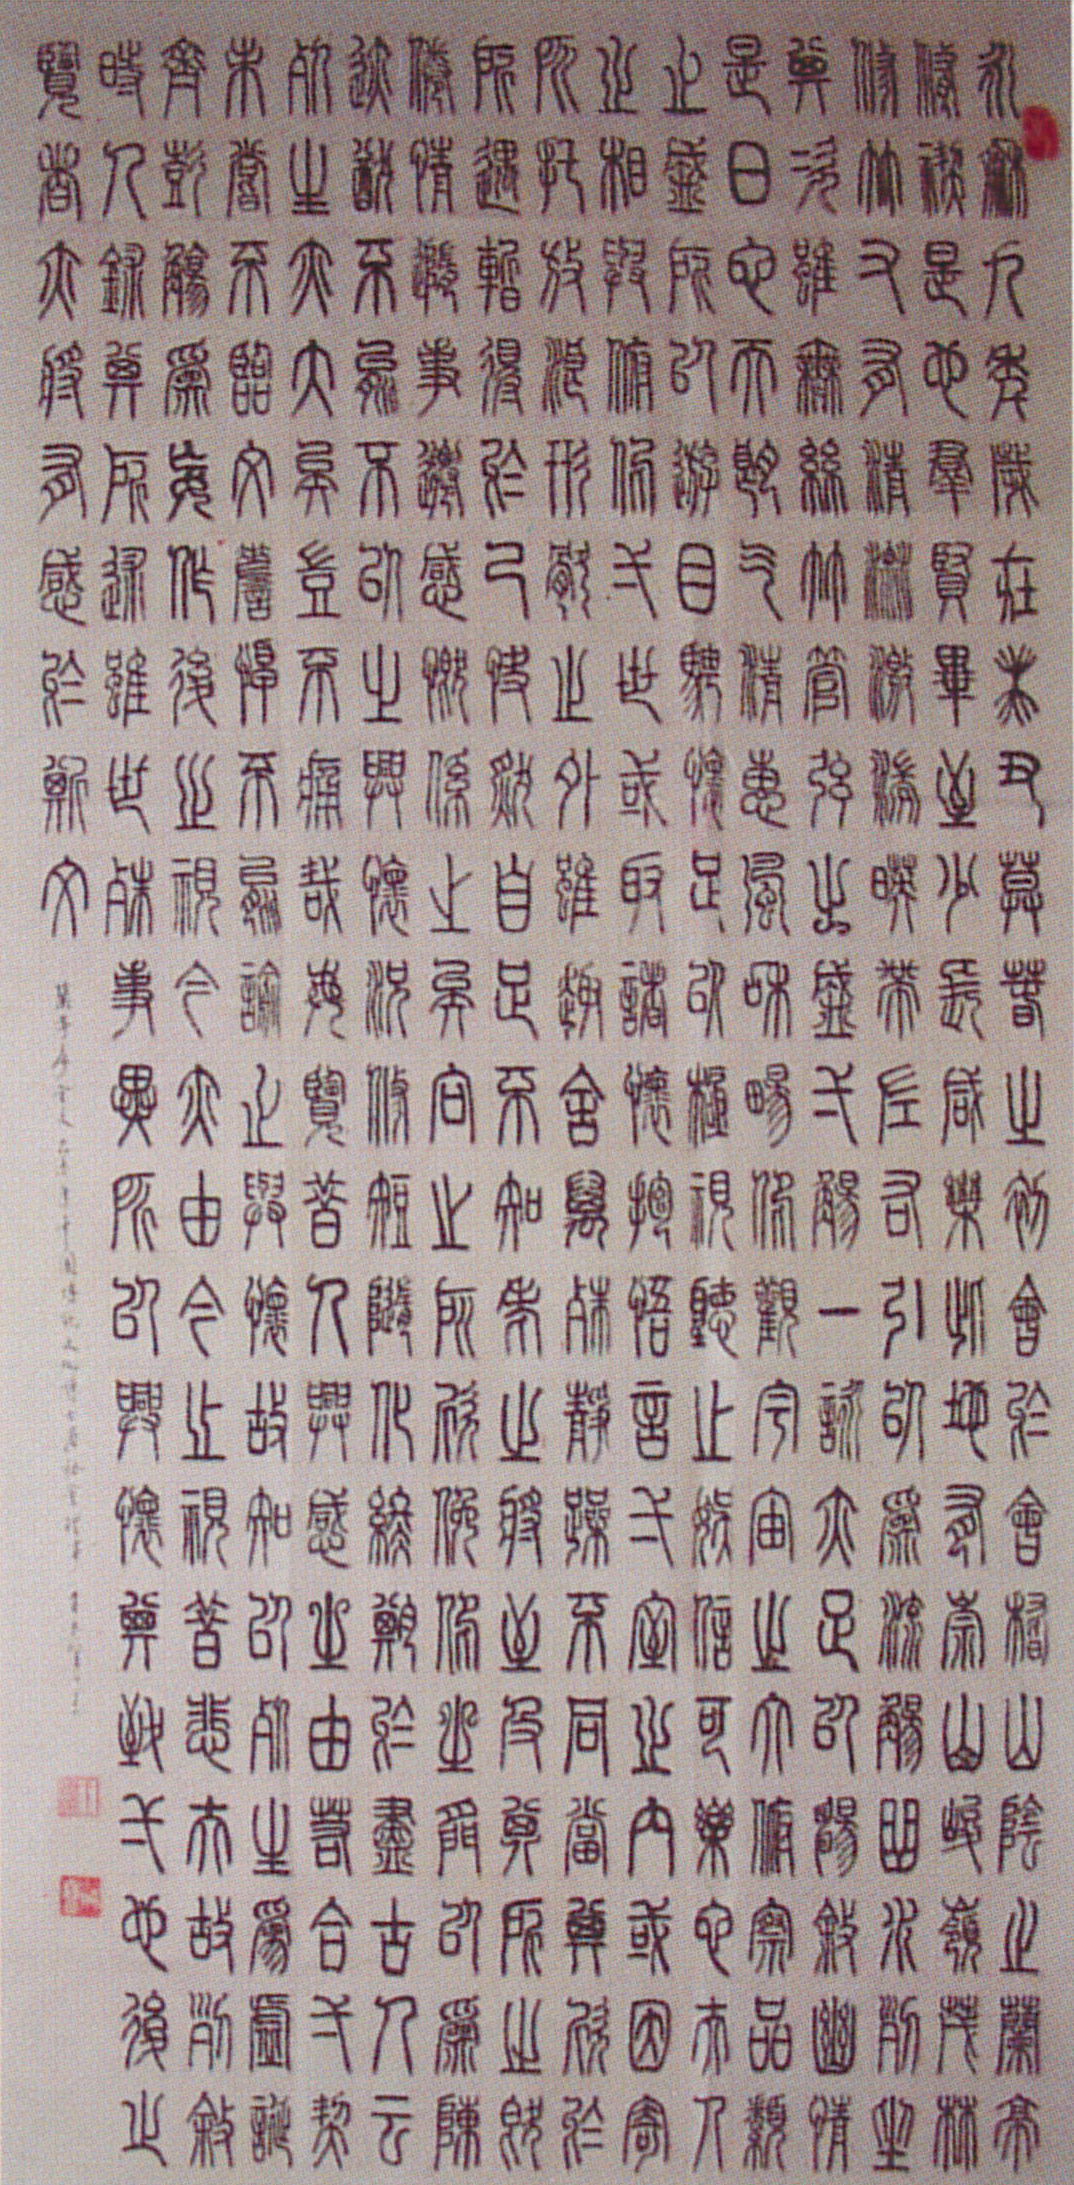 永和九年歲在癸丑暮春之初會於會稽山陰之蘭亭
修禊是也羣賢畢至少長咸集此地有崇山峻嶺茂林
修竹又有清流激湍暎帶左右引以為流觴曲水列坐
其次雖無絲竹管弦之盛弌觴一詠亦足以暢敘幽情
是日也天朗氣清惠風和暢仰觀宇宙之大俯察品類
之盛所以游目騁懷足以極視聽之娛信可樂也夫人
之相與俯仰弌世或取諸懷抱悟言弌室之內或因寄
所託放浪形骸之外雖趣舍萬殊靜躁不同當其欣於
所遇暫得於己快然自足不知老之將至及其所之既
倦情隨事遷感慨係之矣向之所欣俛仰之間以為陳
迹猶不能不以之興懷況修短隨化終期於盡古人云
死生亦大矣豈不痛哉每覽昔人興感之由若合弌契
未嘗不臨文嗟悼不能諭之與懷故知以死生為虛誕
齊彭殤為妄作後之視今亦由今之視昔悲夫故列敘
時人錄其所述雖世殊事異所以興懷其致弌也後之
覽者亦將有感於斯文